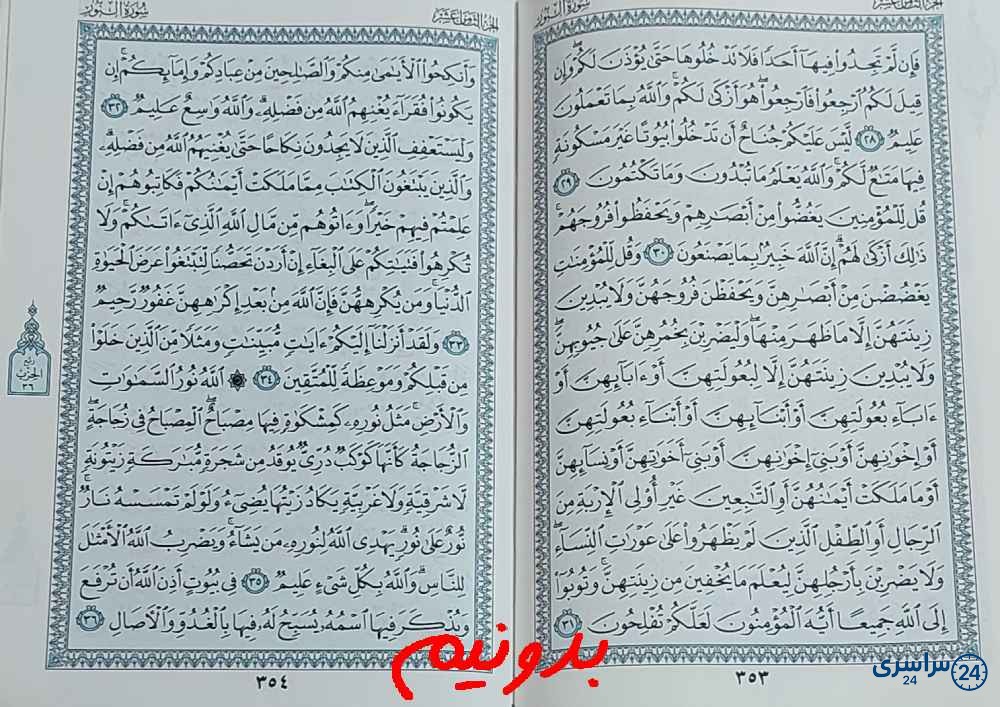 الجزء الثامن عشر
سورة النور
فَإِن لَّمْ تَجِدُوا۟ فِيهَآ أَحَدًا فَلَا تَدْخُلُوهَا حَتَّىٰ يُؤْذَنَ لَكُمْ ۖ وَإِن
قِيلَ لَكُمُ ٱرْجِعُوا۟ فَٱرْجِعُوا۟ ۖ هُوَ أَزْكَىٰ لَكُمْ ۚ وَٱللَّهُ بِمَا تَعْمَلُونَ
عَلِيمٌ ٢٨ لَّيْسَ عَلَيْكُمْ جُنَاحٌ أَن تَدْخُلُوا۟ بُيُوتًا غَيْرَ مَسْكُونَةٍ
فِيهَا مَتَـٰعٌ لَّكُمْ ۚ وَٱللَّهُ يَعْلَمُ مَا تُبْدُونَ وَمَا تَكْتُمُونَ ٢٩
قُل لِّلْمُؤْمِنِينَ يَغُضُّوا۟ مِنْ أَبْصَـٰرِهِمْ وَيَحْفَظُوا۟ فُرُوجَهُمْ ۚ
ذَٰلِكَ أَزْكَىٰ لَهُمْ ۗ إِنَّ ٱللَّهَ خَبِيرٌۢ بِمَا يَصْنَعُونَ ٣٠ وَقُل لِّلْمُؤْمِنَـٰتِ
يَغْضُضْنَ مِنْ أَبْصَـٰرِهِنَّ وَيَحْفَظْنَ فُرُوجَهُنَّ وَلَا يُبْدِينَ
زِينَتَهُنَّ إِلَّا مَا ظَهَرَ مِنْهَا ۖ وَلْيَضْرِبْنَ بِخُمُرِهِنَّ عَلَىٰ جُيُوبِهِنَّ ۖ
وَلَا يُبْدِينَ زِينَتَهُنَّ إِلَّا لِبُعُولَتِهِنَّ أَوْ ءَابَآئِهِنَّ أَوْ
ءَابَآءِ بُعُولَتِهِنَّ أَوْ أَبْنَآئِهِنَّ أَوْ أَبْنَآءِ بُعُولَتِهِنَّ
أَوْ إِخْوَٰنِهِنَّ أَوْ بَنِىٓ إِخْوَٰنِهِنَّ أَوْ بَنِىٓ أَخَوَٰتِهِنَّ أَوْ نِسَآئِهِنَّ
أَوْ مَا مَلَكَتْ أَيْمَـٰنُهُنَّ أَوِ ٱلتَّـٰبِعِينَ غَيْرِ أُو۟لِى ٱلْإِرْبَةِ مِنَ
ٱلرِّجَالِ أَوِ ٱلطِّفْلِ ٱلَّذِينَ لَمْ يَظْهَرُوا۟ عَلَىٰ عَوْرَٰتِ ٱلنِّسَآءِ ۖ
وَلَا يَضْرِبْنَ بِأَرْجُلِهِنَّ لِيُعْلَمَ مَا يُخْفِينَ مِن زِينَتِهِنَّ ۚ وَتُوبُوٓا۟
إِلَى ٱللَّهِ جَمِيعًا أَيُّهَ ٱلْمُؤْمِنُونَ لَعَلَّكُمْ تُفْلِحُونَ ٣١
٣٥٣
الجزء الثامن عشر
سورة النور
وَأَنكِحُوا۟ ٱلْأَيَـٰمَىٰ مِنكُمْ وَٱلصَّـٰلِحِينَ مِنْ عِبَادِكُمْ وَإِمَآئِكُمْ ۚ إِن
يَكُونُوا۟ فُقَرَآءَ يُغْنِهِمُ ٱللَّهُ مِن فَضْلِهِۦ ۗ وَٱللَّهُ وَٰسِعٌ عَلِيمٌ ٣٢
وَلْيَسْتَعْفِفِ ٱلَّذِينَ لَا يَجِدُونَ نِكَاحًا حَتَّىٰ يُغْنِيَهُمُ ٱللَّهُ مِن فَضْلِهِۦ ۗ
وَٱلَّذِينَ يَبْتَغُونَ ٱلْكِتَـٰبَ مِمَّا مَلَكَتْ أَيْمَـٰنُكُمْ فَكَاتِبُوهُمْ إِنْ
عَلِمْتُمْ فِيهِمْ خَيْرًا ۖ وَءَاتُوهُم مِّن مَّالِ ٱللَّهِ ٱلَّذِىٓ ءَاتَىٰكُمْ ۚ وَلَا
تُكْرِهُوا۟ فَتَيَـٰتِكُمْ عَلَى ٱلْبِغَآءِ إِنْ أَرَدْنَ تَحَصُّنًا لِّتَبْتَغُوا۟ عَرَضَ ٱلْحَيَوٰةِ
ٱلدُّنْيَا ۚ وَمَن يُكْرِههُّنَّ فَإِنَّ ٱللَّهَ مِنۢ بَعْدِ إِكْرَٰهِهِنَّ غَفُورٌ رَّحِيمٌ
٣٣ وَلَقَدْ أَنزَلْنَآ إِلَيْكُمْ ءَايَـٰتٍ مُّبَيِّنَـٰتٍ وَمَثَلًا مِّنَ ٱلَّذِينَ خَلَوْا۟
مِن قَبْلِكُمْ وَمَوْعِظَةً لِّلْمُتَّقِينَ ٣٤ ۞ ٱللَّهُ نُورُ ٱلسَّمَـٰوَٰتِ
وَٱلْأَرْضِ ۚ مَثَلُ نُورِهِۦ كَمِشْكَوٰةٍ فِيهَا مِصْبَاحٌ ۖ ٱلْمِصْبَاحُ فِى زُجَاجَةٍ ۖ
ٱلزُّجَاجَةُ كَأَنَّهَا كَوْكَبٌ دُرِّىٌّ يُوقَدُ مِن شَجَرَةٍ مُّبَـٰرَكَةٍ زَيْتُونَةٍ
لَّا شَرْقِيَّةٍ وَلَا غَرْبِيَّةٍ يَكَادُ زَيْتُهَا يُضِىٓءُ وَلَوْ لَمْ تَمْسَسْهُ نَارٌ ۚ
نُّورٌ عَلَىٰ نُورٍ ۗ يَهْدِى ٱللَّهُ لِنُورِهِۦ مَن يَشَآءُ ۚ وَيَضْرِبُ ٱللَّهُ ٱلْأَمْثَـٰلَ
لِلنَّاسِ ۗ وَٱللَّهُ بِكُلِّ شَىْءٍ عَلِيمٌ ٣٥ فِى بُيُوتٍ أَذِنَ ٱللَّهُ أَن تُرْفَعَ
وَيُذْكَرَ فِيهَا ٱسْمُهُۥ يُسَبِّحُ لَهُۥ فِيهَا بِٱلْغُدُوِّ وَٱلْـَٔاصَالِ ٣٦
٣٥٤
ربع
الحزب
٣٦
بدونیم
سراسری
24
24